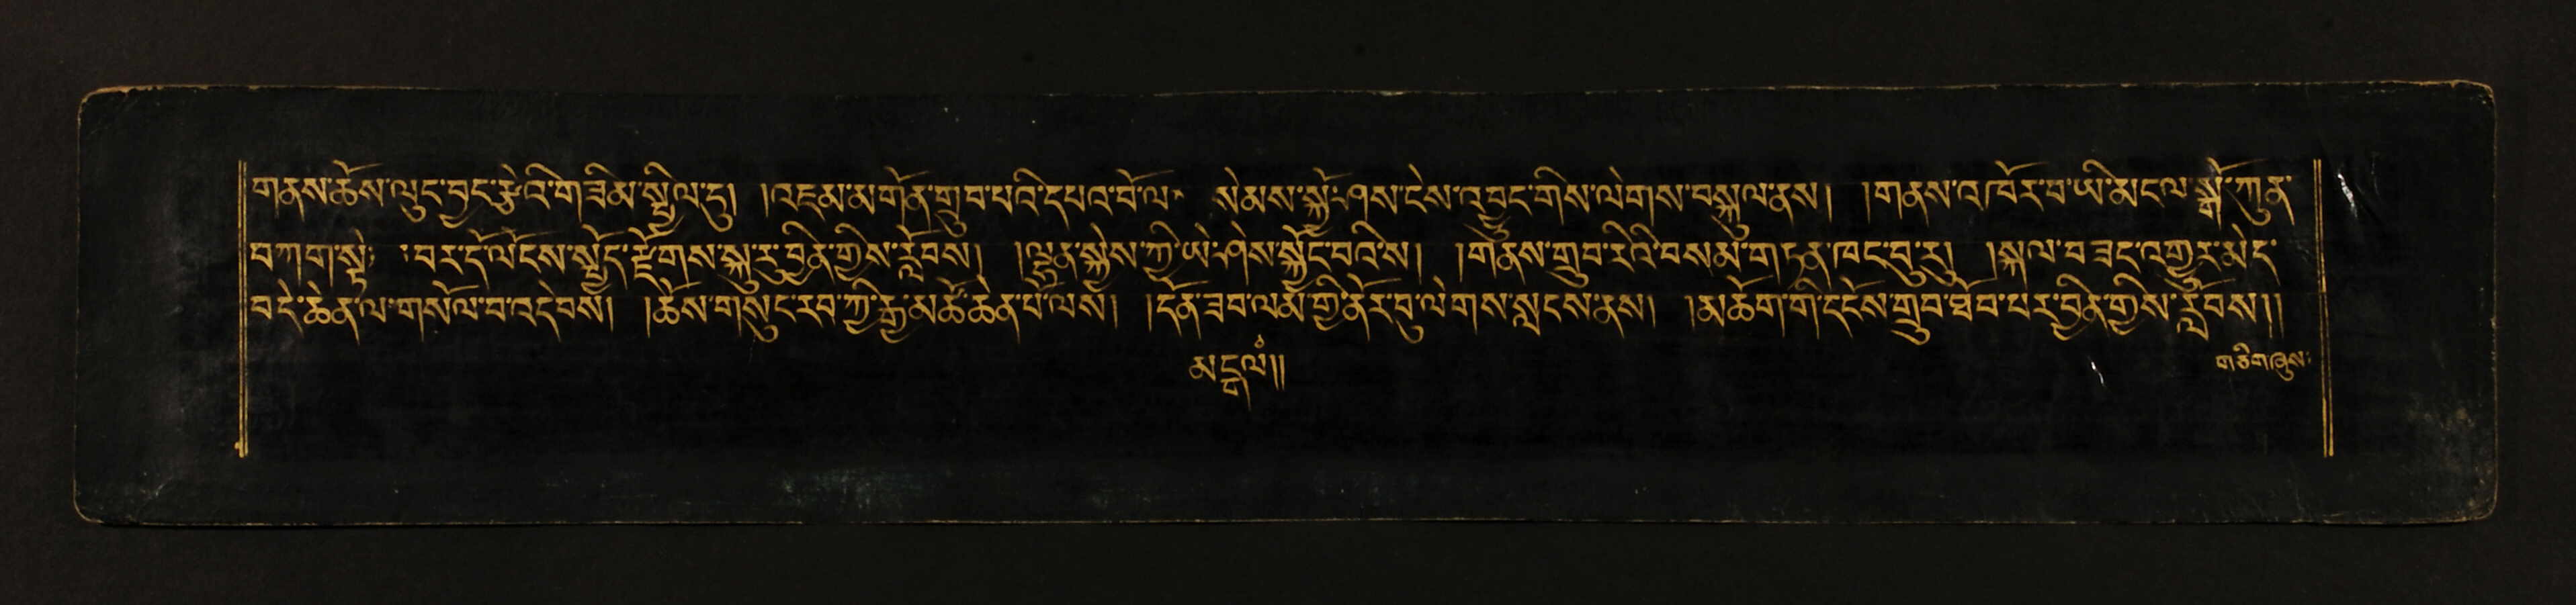 གནས་ཆོས་ལུང་བྱང་རྩེ་འི་གེ་ཟིམ་སྤྱིལ་དུ། །འཇམ་མ་གོན་གྲུབ་པའི་དཔའ་བོ་ལ་ སེམས་སྐྱོ་ཤས་ངེས་འབྱུང་གིས་ལེགས་བསྐུལ་ནས། །གནས་འཁོར་བ་ཡི་མེངལ་སྒོ་ཀུན་
བཀག་སྟེ་ བར་དོ་ལོངས་སྤྱོད་རྫོགས་སྐུ་རུ་བྱིན་གྱིས་རློབས། །ལྷན་སྐྱེས་ཀྱི་ཡེ་ཤེས་སྐྱོང་བའི་ས། །གནས་གྲུབ་རིའི་བསམ་གཏན་ཁང་བུ་རུ། །སྐལ་བཟང་འགྱུར་མེད་
བདེ་ཆེན་ལ་གསོལ་བ་འདེབས། །ཆོས་གསུང་རབ་ཀྱི་རྒྱ་མཚོ་ཆེན་པོ་ལས། །དོན་ཟབ་ལམ་གྱི་ནོར་བུ་ལེགས་སླངས་ནས། །མཆོག་གི་དངོས་གྲུབ་ཐོབ་པར་བྱིན་གྱིས་རློབས།།
མངྒལཾ།།
གཅིག་ཞུས